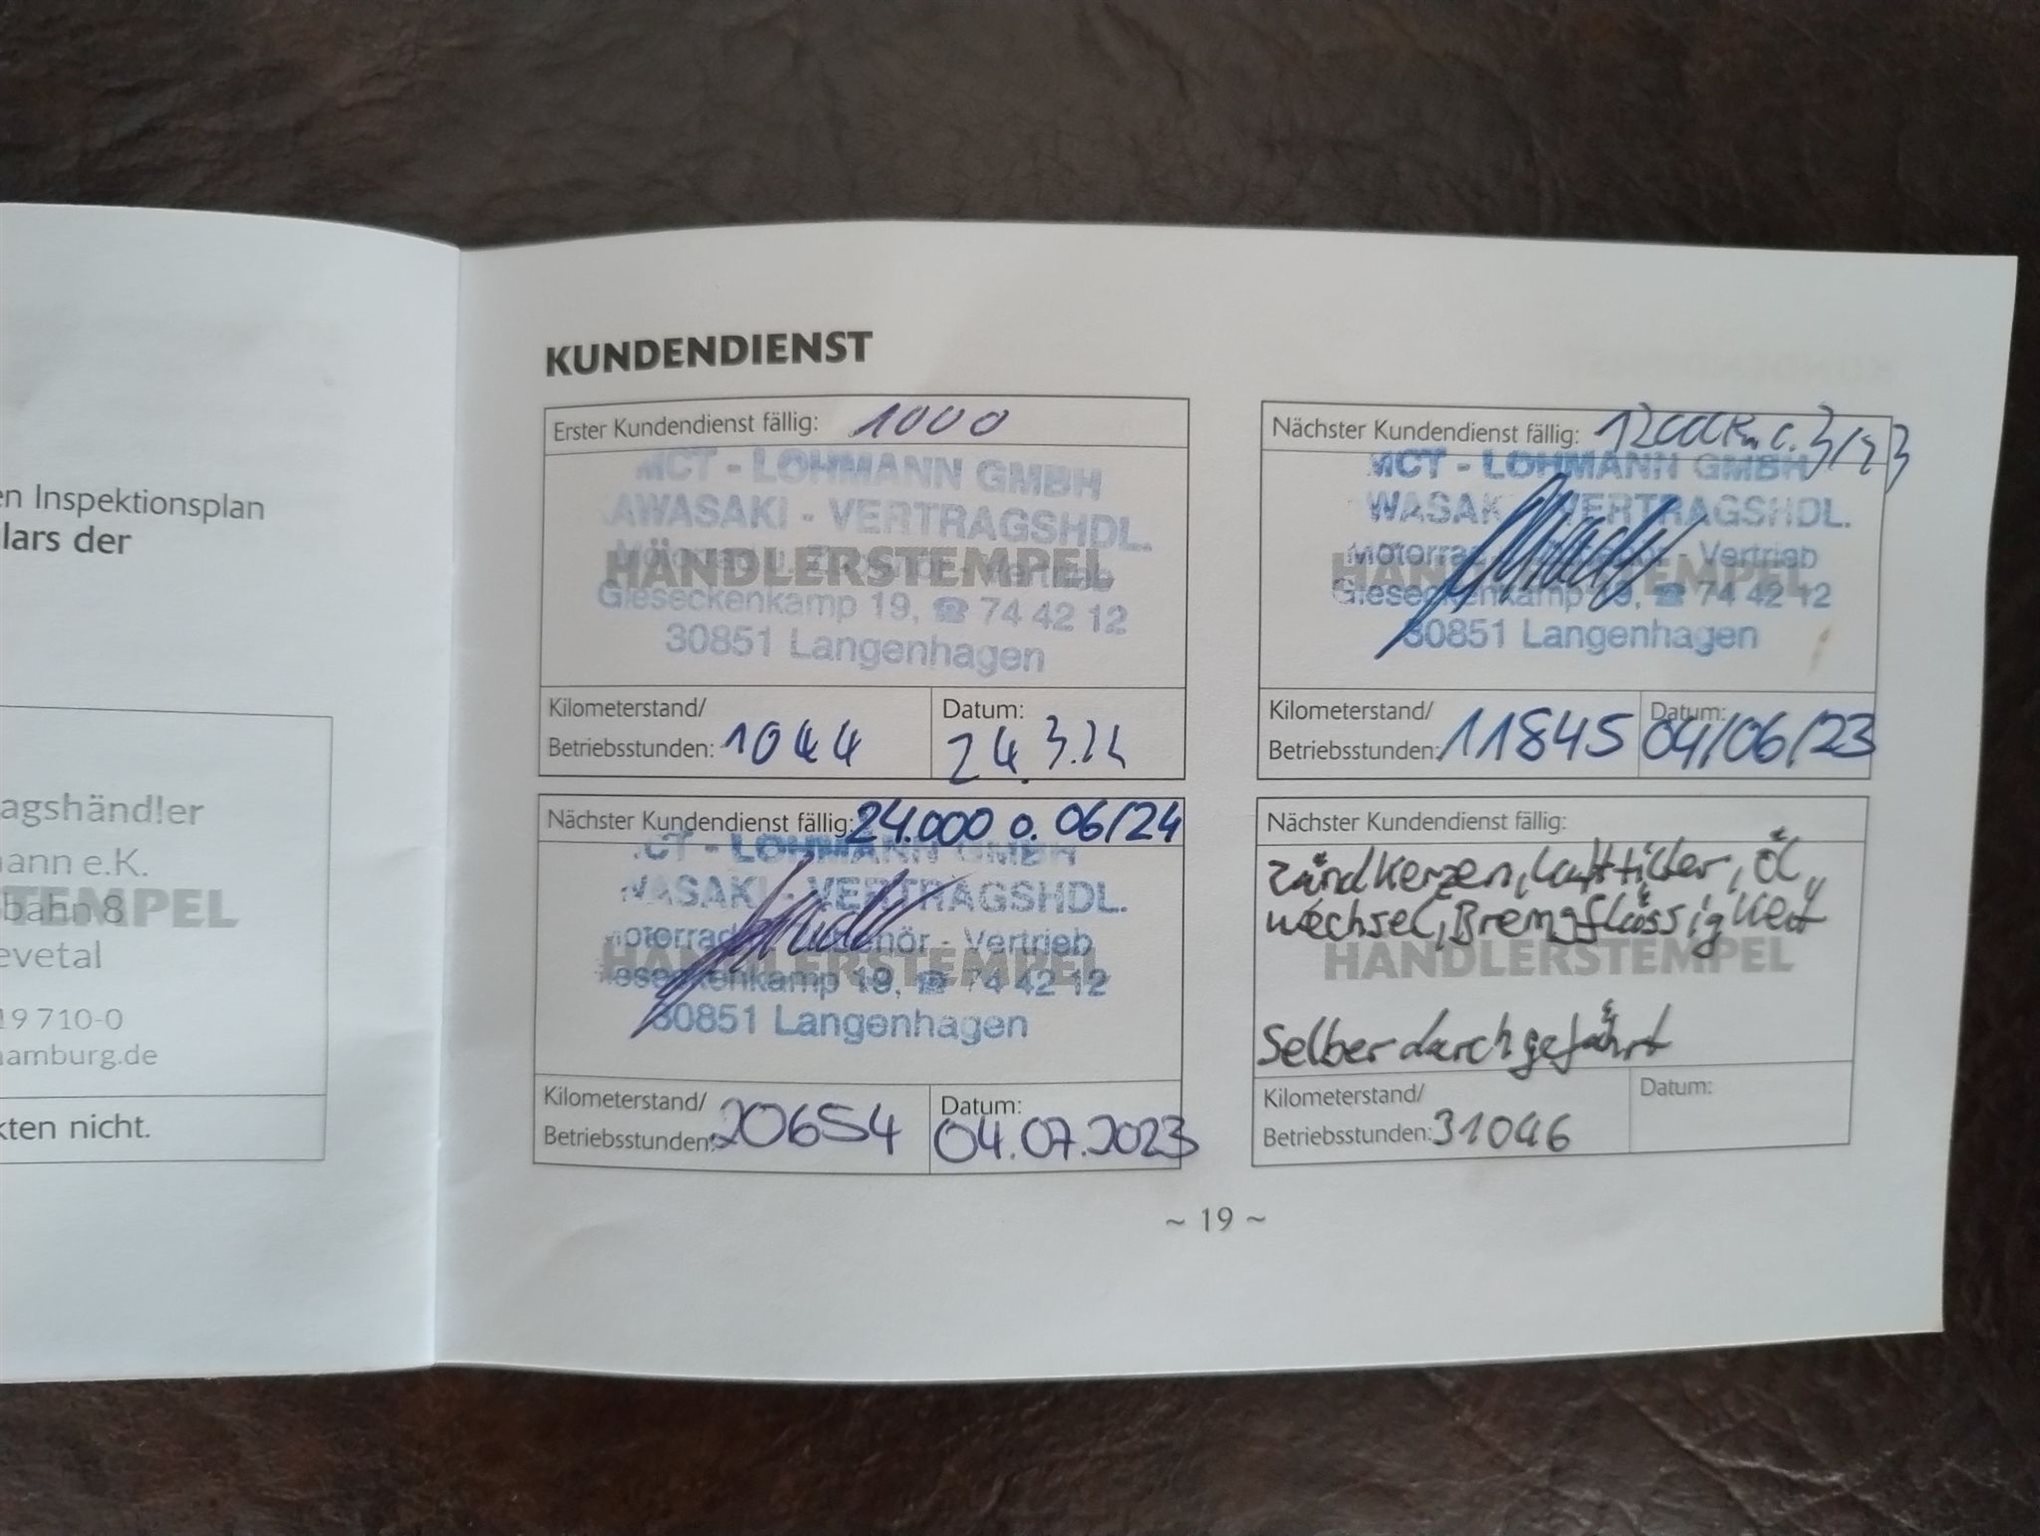 en Inspektionsplan
lars der
agshändler
ann e.K.
STEMPEL
bahn 8
evetal
19 710-0
hamburg.de
kten nicht.
KUNDENDIENST
Erster Kundendienst fällig: 1000
MCT - LOHMANN GMBH
AWASAKI - VERTRAGSHDL.
HÄNDLERSTEMPEL
Motorrad u. Zubehör - Vertrieb
Gieseckenkamp 19, ☎ 74 42 12
30851 Langenhagen
Kilometerstand/
Betriebsstunden: 1044
Datum:
24.3.22
Nächster Kundendienst fällig: 12000km o. 3/23
MCT - LOHMANN GMBH
WASAK VERTRAGSHDL.
Motorrad - Vertrieb
HÄNDLERSTEMPEL
Gieseckenkamp 19, ☎ 74 42 12
30851 Langenhagen
Kilometerstand/
Betriebsstunden: 11845
Datum:
04/06/23
Nächster Kundendienst fällig: 24.000 o. 06/24
CT - LOHMANN GMBH
WASAKI - VERTRAGSHDL.
Motorrad Zubehör - Vertrieb
HÄNDLERSTEMPEL
ieseckenkamp 19, ☎ 74 42 12
30851 Langenhagen
Kilometerstand/
Betriebsstunden: 20654
Datum:
04.07.2023
Nächster Kundendienst fällig:
Zündkerzen, Luftfilter, Öl,
wechsel, Bremsflüssigkeit
HÄNDLERSTEMPEL
Selber durchgeführt
Kilometerstand/
Betriebsstunden: 31046
Datum:
~ 19 ~